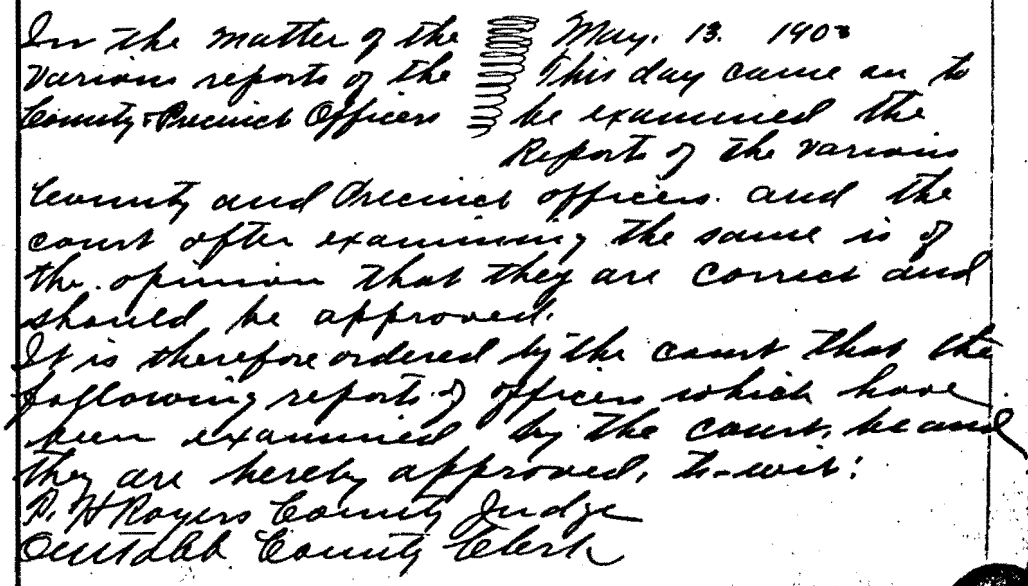 In the matter of the
Various reports of the
County & Precinct Officers
May. 13. 1903
This day came on to
be examined the
Reports of the various
County and Precinct officers. and the
court after examining the same is of
the opinion that they are correct and
should be approved.
It is therefore ordered by the court that the
following reports of officers which have
been examined by the court, be and
they are hereby approved, to-wit:
P. H Rogers County Judge
County Clerk